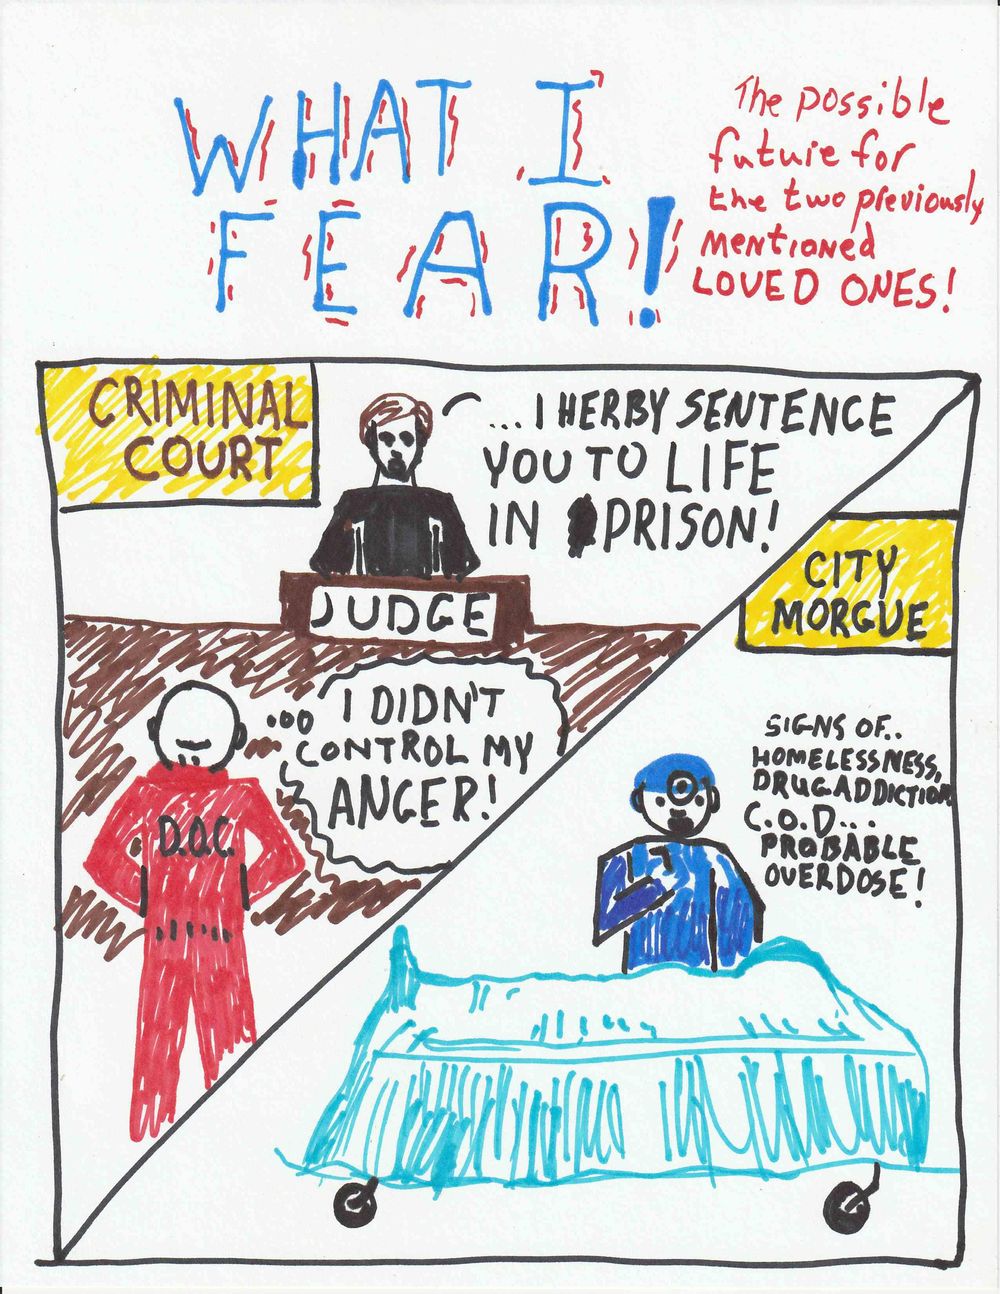 WHAT I
FEAR!
The possible
future for
the two previously
mentioned
LOVED ONES!
CRIMINAL
COURT
...I HERBY SENTENCE
YOU TO LIFE
IN PRISON!
JUDGE
I DIDN'T
CONTROL MY
ANGER!
D.O.C.
CITY
MORGUE
SIGNS OF..
HOMELESSNESS,
DRUG ADDICTION
C.O.D...
PROBABLE
OVERDOSE!